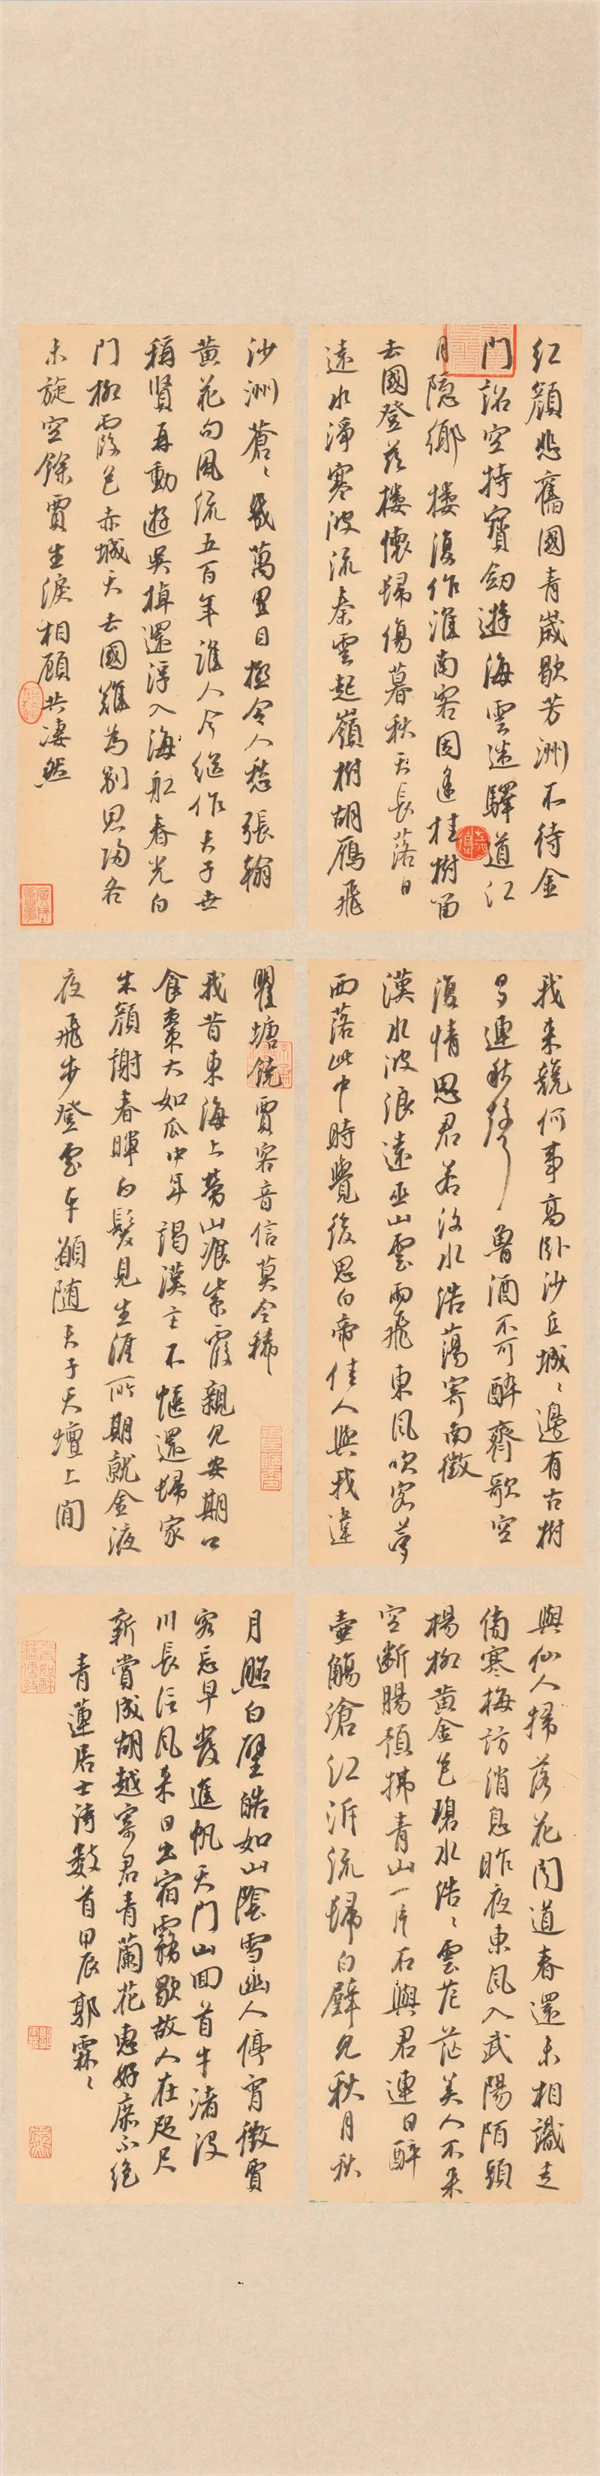 红顏悲舊國青歲歇芳洲不待金
門詔空持寶劍遊海雲迷驛道江
月隐鄉樓復作淮南客因逢桂樹留
去國登茲樓懷歸傷暮秋天長落日
遠水淨寒波流秦雲起嶺樹胡雁飛
沙洲蒼〻幾萬里目極令人愁張翰
黄花句風流五百年誰人今繼作夫子世
稱賢再動遊吳棹還浮入海船春光白
門柳霞色赤城天去國難為别思歸各
未旋空餘賈生淚相顧共凄然
我来竟何事高卧沙丘城〻邊有古樹
日夕連秋聲魯酒不可醉齊歌空
復情思君若汶水浩蕩寄南徵
漢水波浪遠巫山雲雨飛東風吹客夢
西落此中時覺後思白帝佳人與我違
瞿塘饒賈客音信莫令稀
我昔東海上勞山飡紫霞親見安期公
食棗大如瓜中年謁漢主不愜還歸家
朱顏謝春暉白髮見生涯所期就金液
夜飛步登雲车願随夫子天壇上閒
與仙人掃落花聞道春還未相識走
傍寒梅訪消息昨夜東風入武陽陌頭
楊柳黄金色碧水浩〻雲茫茫美人不来
空斷腸預拂青山一片石與君連日醉
壺觴滄江泝流歸白璧見秋月秋
月照白璧皓如山陰雪幽人停宵徵賈
客忘早發進帆天門山回首牛渚没
川長信風来日出宿霧歇故人在咫尺
新賞成胡越寄君青蘭花惠好庶不絶
青蓮居士詩數首甲辰郭霖〻